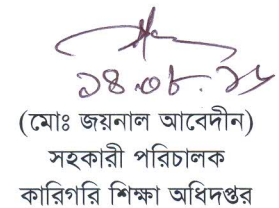 ১৪.০৮.১৮
(মোঃ জয়নাল আবেদীন)
সহকারী পরিচালক
কারিগরি শিক্ষা অধিদপ্তর